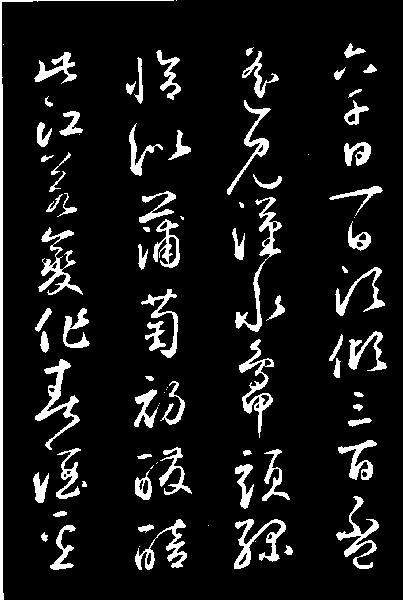 六千日一日須傾三百盃
遙見漢水鴨頭綠
恰似蒲萄初醱醅
此江若變作春酒